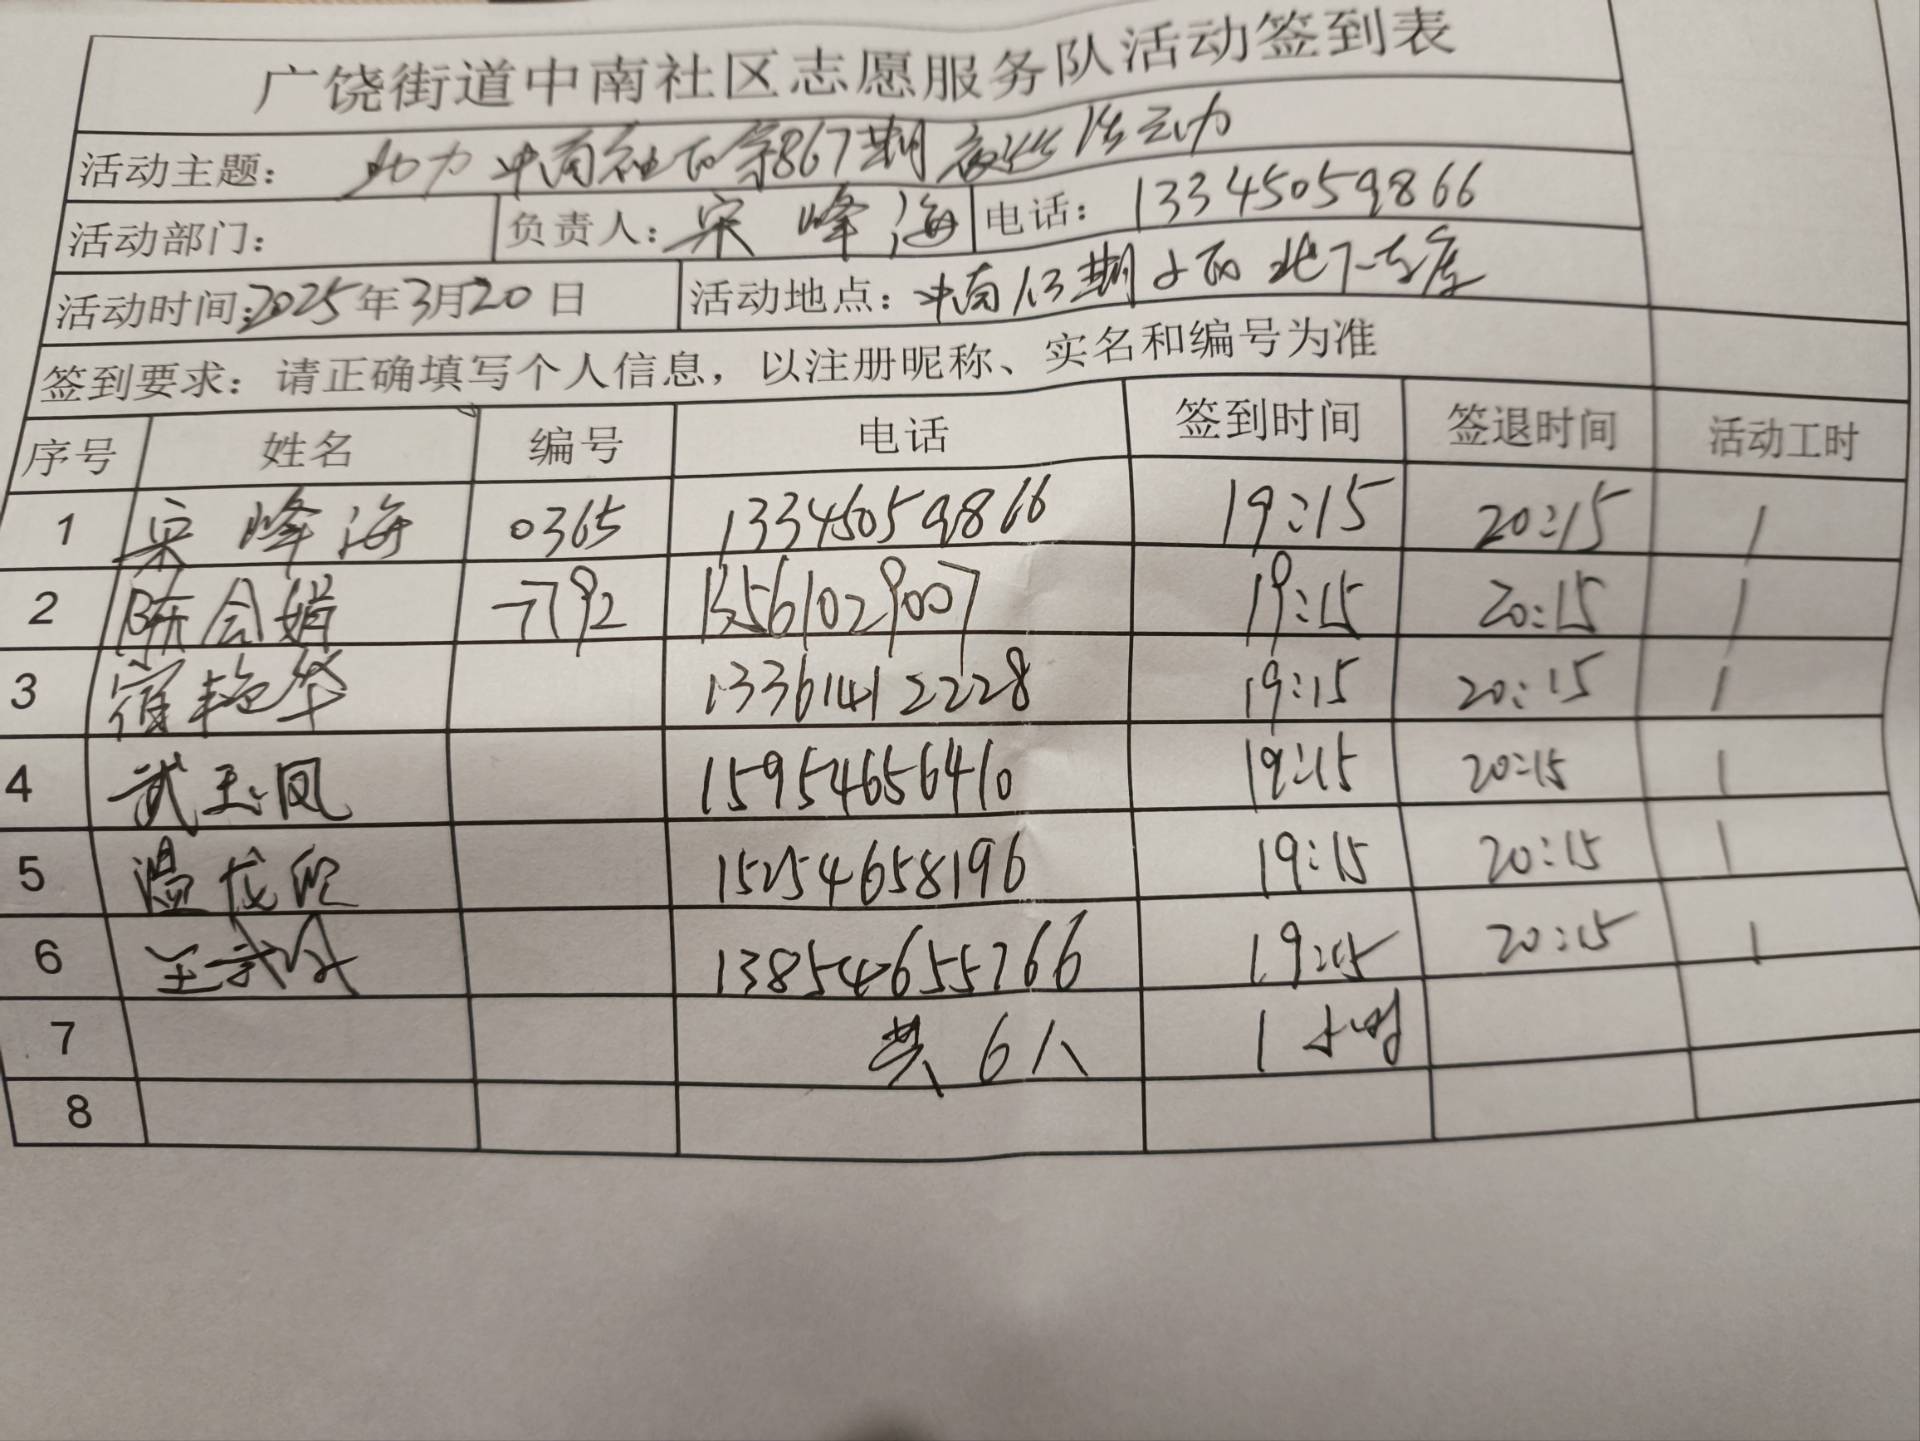 广饶街道中南社区志愿服务队活动签到表
活动主题: 助力中南社区第867期夜巡活动
活动部门: 负责人: 宋峰海 电话: 13345059866
活动时间: 2025年3月20日 活动地点: 中南1.3期小区北
签到要求: 请正确填写个人信息，以注册昵称、实名和编号为准
序号 姓名 编号 电话 签到时间 签退时间 活动工时
1 宋峰海 0365 13345059866 19:15 20:15 1
2 陈会娟 7792 13561029007 19:15 20:15 1
3 宿艳华 13361412228 19:15 20:15 1
4 武玉凤 15954656410 19:15 20:15 1
5 温 15254658196 19:15 20:15 1
6 王武 13854655766 19:15 20:15 1
7 共6人 1小时
8